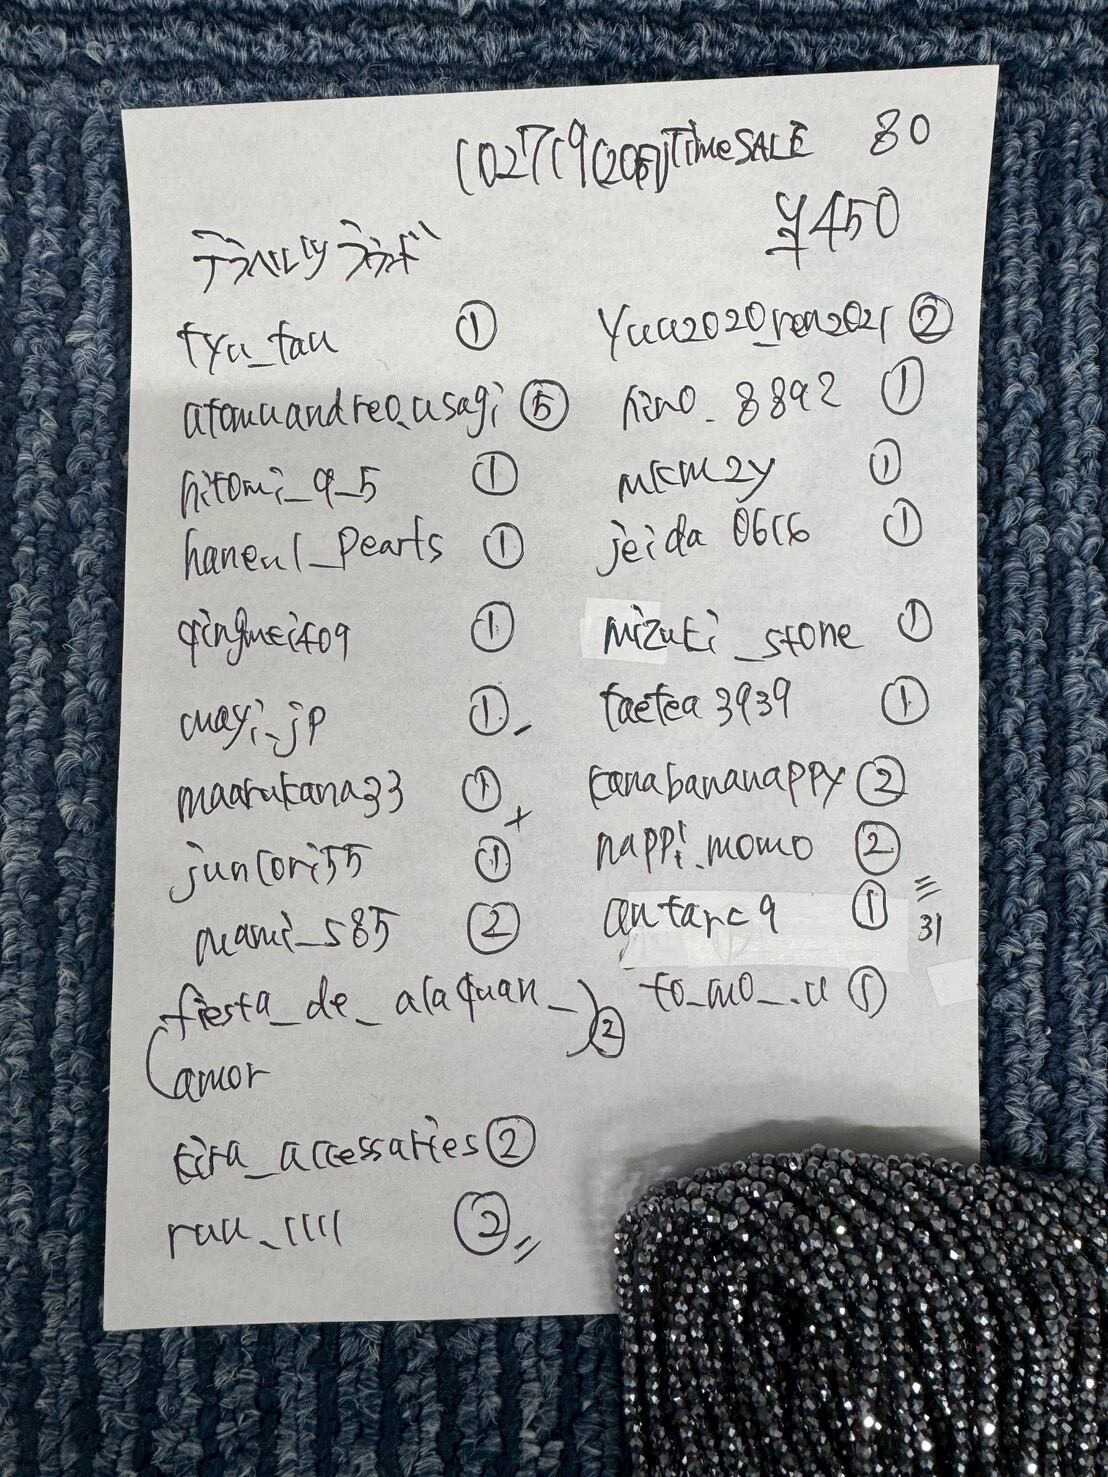 TimeSALE 80
¥450
テラヘルツ
tyu_tau ①
atomuandreo_usagi ⑤
hitomi_9_5 ①
haneul_pearls ①
qingmei409 ①
mayi_jp ①
maarukana33 ①
juncori55 ①
mami_s85 ②
fiesta_de_alaquan_ ②
amor
kira_accessaries ②
ruu_1111 ②
yuu2020_ren2021 ②
hino_8892 ①
mkm2y ①
jeida0616 ①
mizuki_stone ①
taetea3939 ①
kanabananappy ②
nappi_momo ②
antarc9 ①
31
①